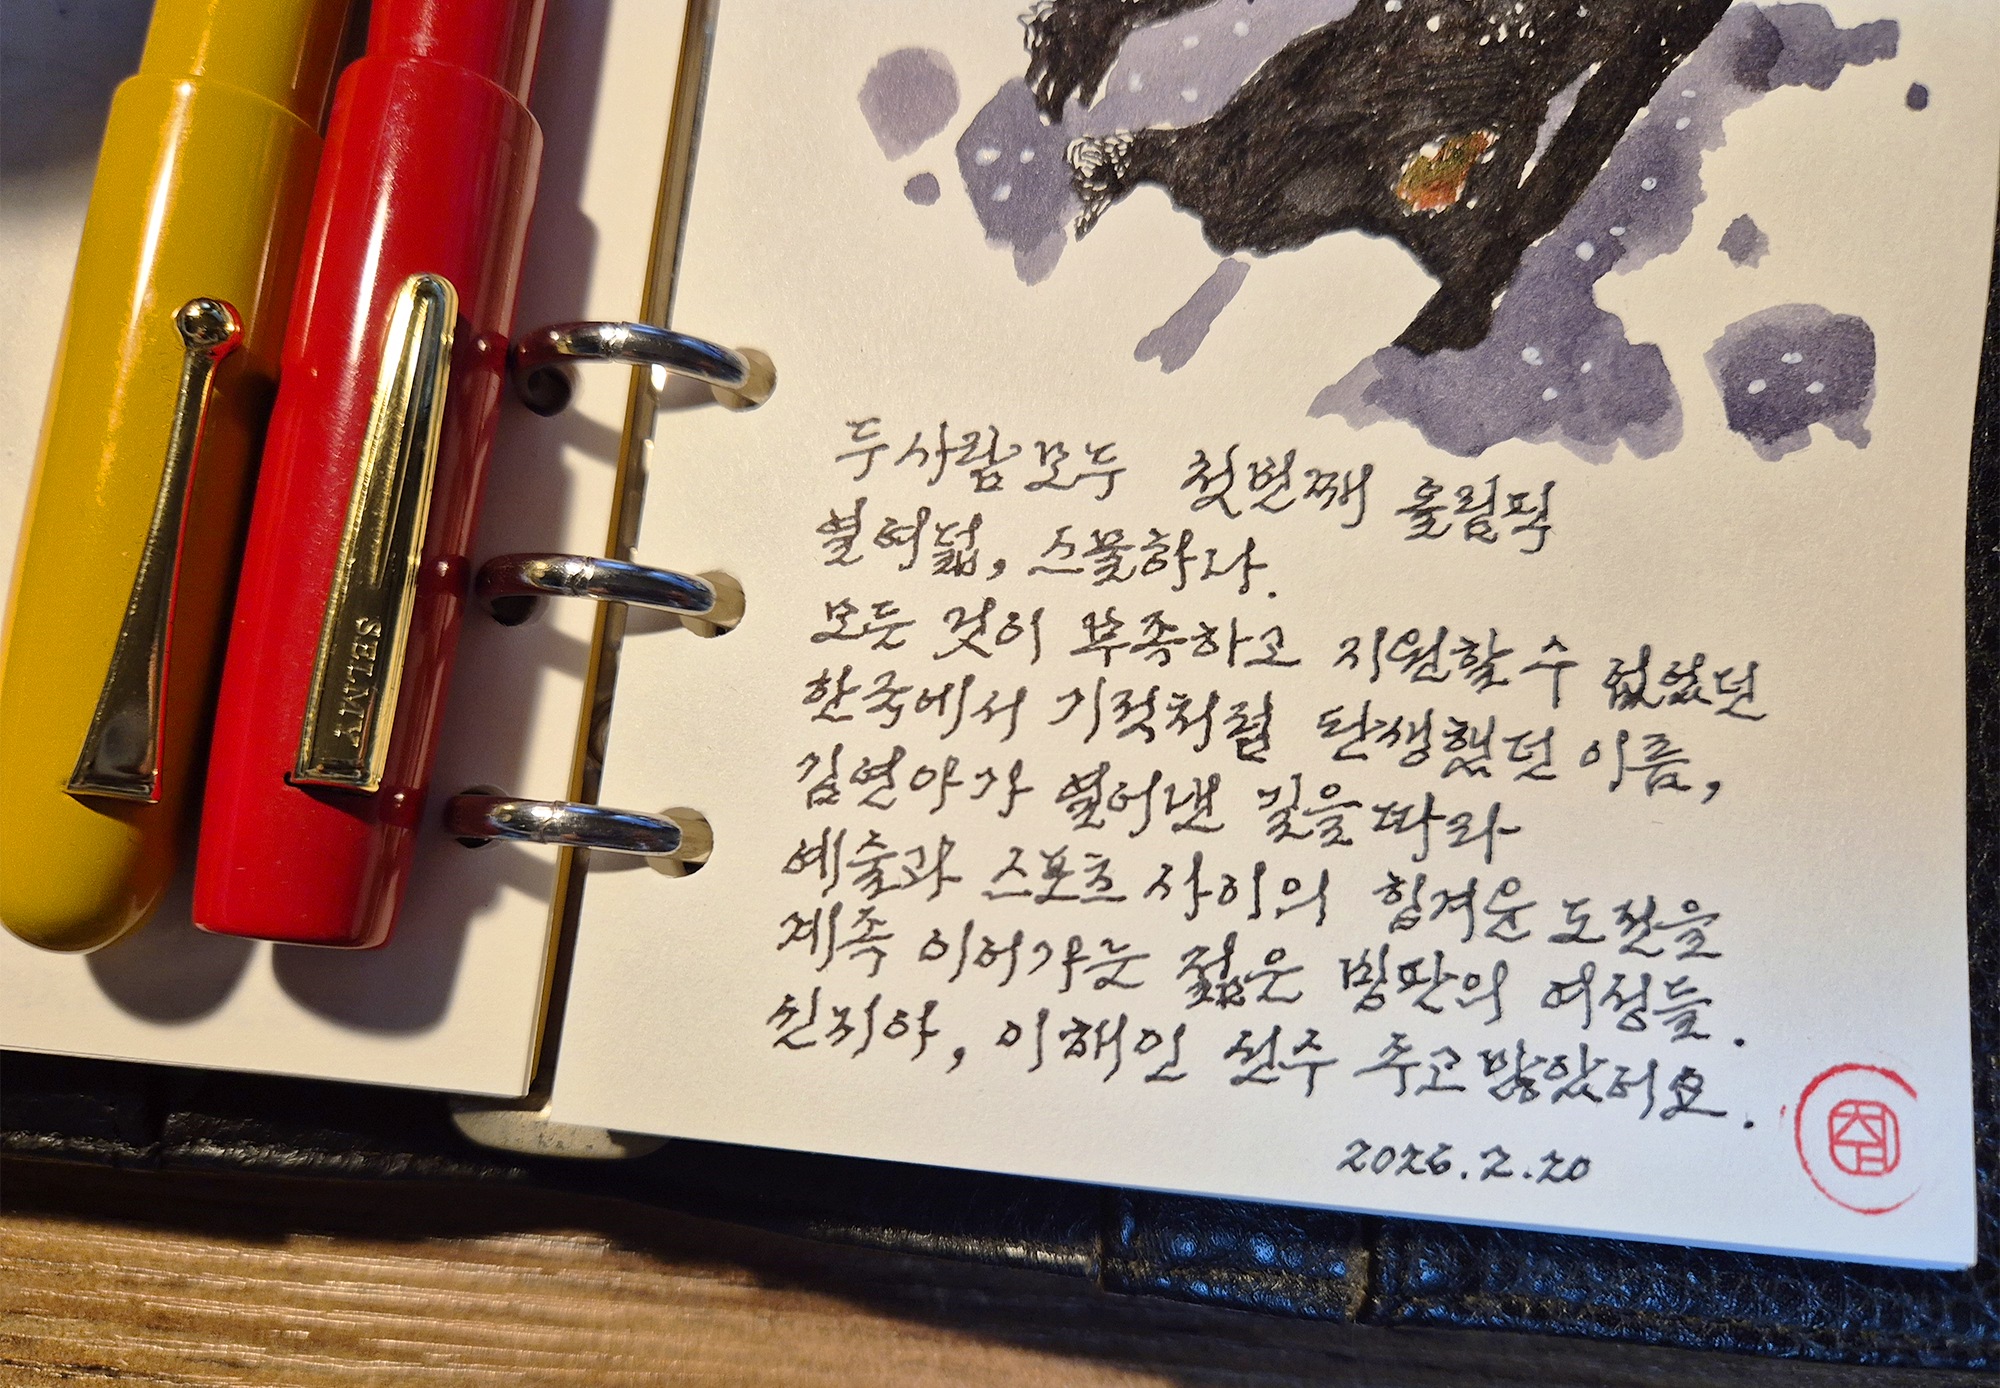 SELMY
두 사람 모두 첫번째 올림픽
열여덟, 스물하나.
모든 것이 부족하고 지원할 수 없었던
한국에서 기적처럼 탄생했던 이름,
김연아가 열어낸 길을 따라
예술과 스포츠 사이의 힘겨운 도전을
계속 이어가는 젊은 빙판의 여성들.
신지아, 이해인 선수 수고 많았어요.
2026.2.20